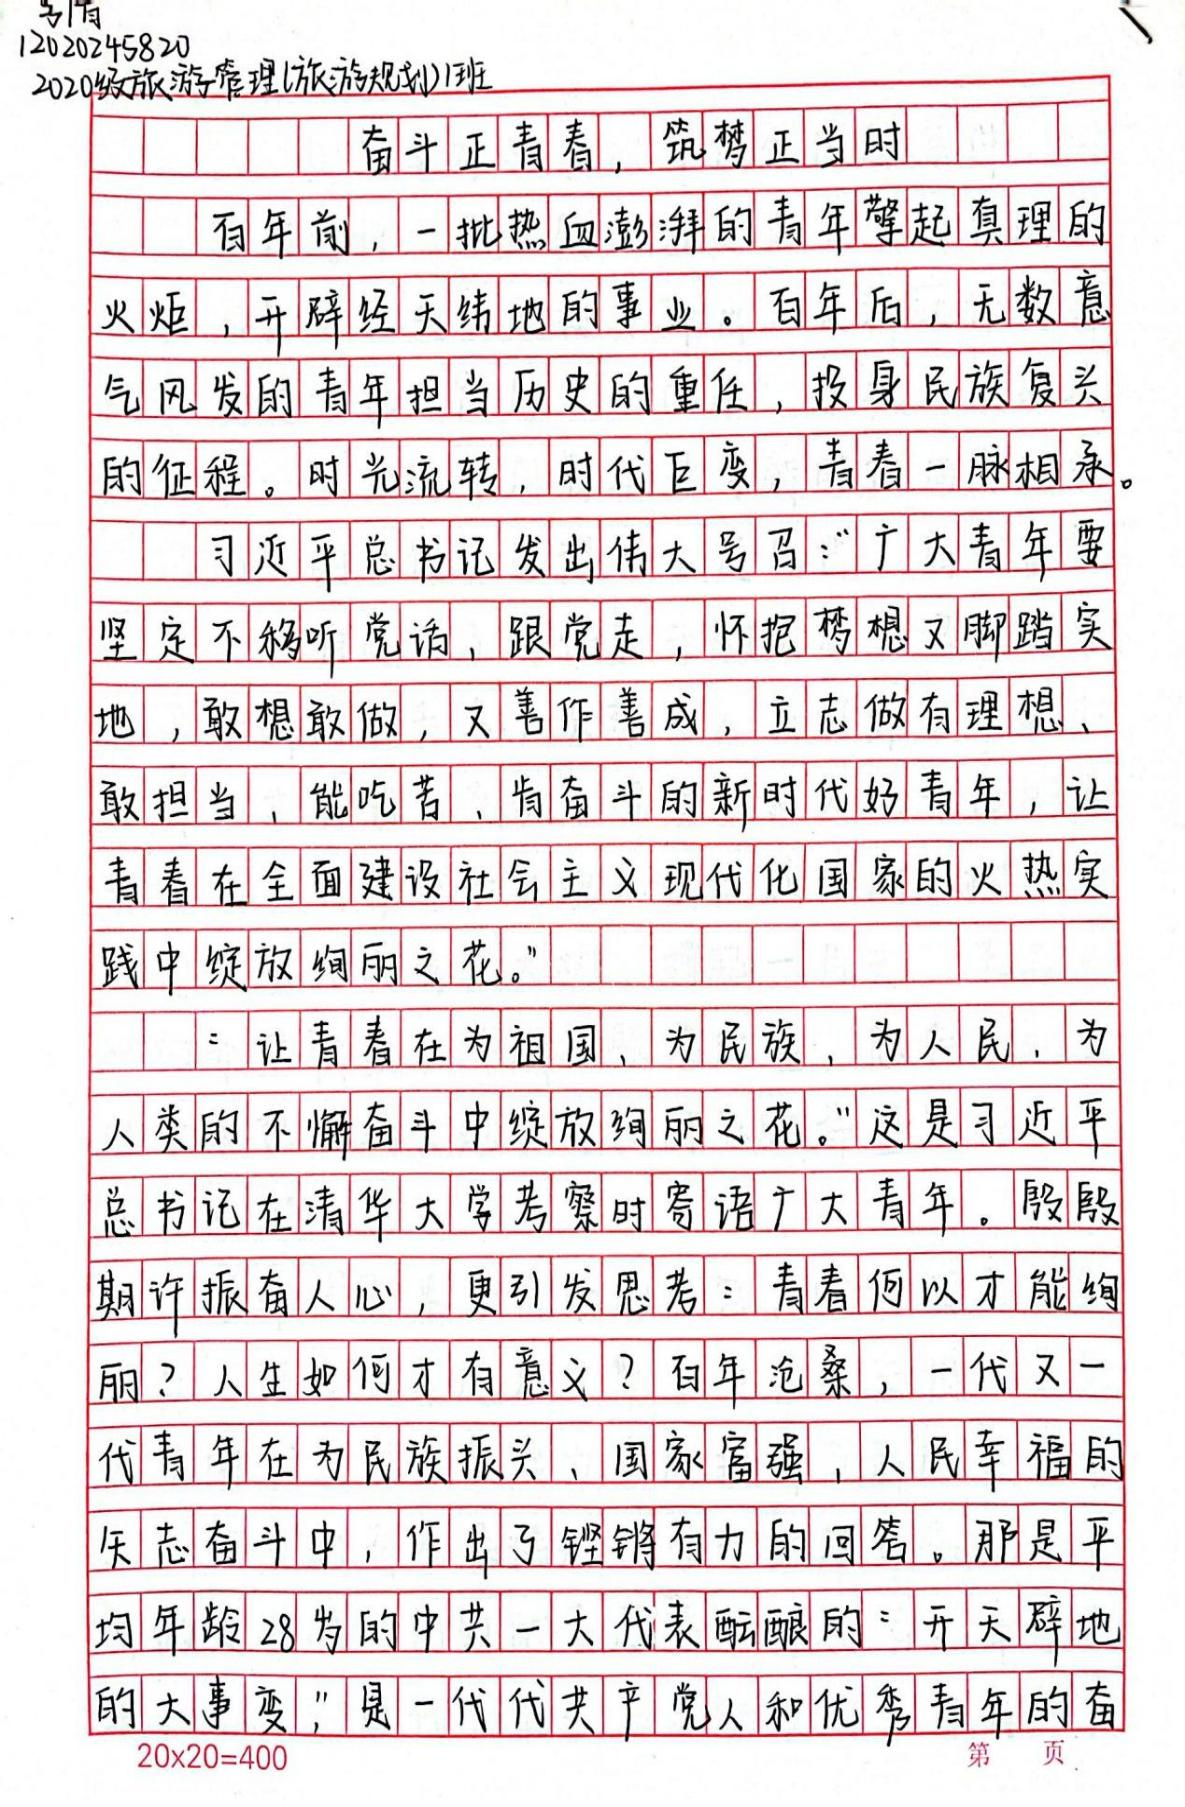 12020245820
2020级旅游管理(旅游规划)1班
奋斗正青春，筑梦正当时
百年前，一批热血澎湃的青年擎起真理的
火炬，开辟经天纬地的事业。百年后，无数意
气风发的青年担当历史的重任，投身民族复兴
的征程。时光流转，时代巨变，青春一脉相承。
习近平总书记发出伟大号召："广大青年要
坚定不移听党话、跟党走，怀抱梦想又脚踏实
地，敢想敢做，又善作善成，立志做有理想、
敢担当、能吃苦、肯奋斗的新时代好青年，让
青春在全面建设社会主义现代化国家的火热实
践中绽放绚丽之花。"
"让青春在为祖国、为民族、为人民、为
人类的不懈奋斗中绽放绚丽之花。"这是习近平
总书记在清华大学考察时寄语广大青年。殷殷
期许振奋人心，更引发思考：青春何以才能绚
丽？人生如何才有意义？百年沧桑，一代又一
代青年在为民族振兴、国家富强、人民幸福的
矢志奋斗中，作出了铿锵有力的回答。那是平
均年龄28岁的中共一大代表酝酿的"开天辟地
的大事变"，是一代代共产党人和优秀青年的奋
20x20=400
第 页